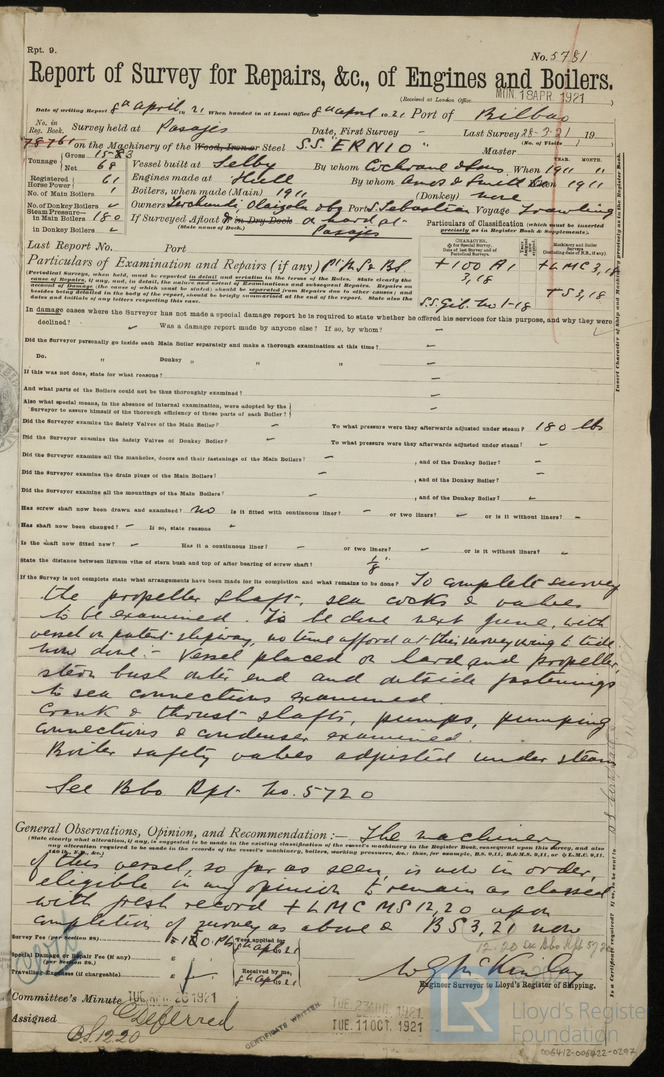 Rpt. 9.
No. 5781
Report of Survey for Repairs, &c., of Engines and Boilers.
(Received at London Office MON. 18 APR. 1921)
Date of writing Report 8th April 1921 When handed in at Local Office 8th April 1921 Port of Bilbao
No. in Reg. Book. Survey held at Pasajes Date, First Survey " Last Survey 28-3-21 19
(No. of Visits)
78761 on the Machinery of the Wood, Iron or Steel S.S. "ERNIO" Master
Tonnage Gross 15-83 Net 68 Vessel built at Selby By whom Cochrane & Sons When 1911
YEAR. MONTH.
Registered Horse Power 61 Engines made at Hull By whom Amos & Smith When 1911
No. of Main Boilers 1 Boilers, when made (Main) 1911 (Donkey) none
No. of Donkey Boilers Owners Port S. Sebastian Voyage Trawling
Steam Pressure— in Main Boilers 180 If Surveyed Afloat or in Dry Dock a hard at Pasajes
in Donkey Boilers (State name of Dock.)
Particulars of Classification (which must be inserted precisely as in Register Book & Supplements).
Last Report No. Port
Particulars of Examination and Repairs (if any)
+100 A1 3,18
+LMC 3,18
+S 3,18
In damage cases where the Surveyor has not made a special damage report he is required to state whether he offered his services for this purpose, and why they were
declined? Was a damage report made by anyone else? If so, by whom?
Did the Surveyor personally go inside each Main Boiler separately and make a thorough examination at this time? —
Do. " Donkey " " " —
If this was not done, state for what reasons? —
And what parts of the Boilers could not be thus thoroughly examined? —
Also what special means, in the absence of internal examination, were adopted by the
Surveyor to assure himself of the thorough efficiency of those parts of each Boiler? —
Did the Surveyor examine the Safety Valves of the Main Boiler? — To what pressure were they afterwards adjusted under steam? 180 lbs
Did the Surveyor examine the Safety Valves of Donkey Boiler? — To what pressure were they afterwards adjusted under steam?
Did the Surveyor examine all the manholes, doors and their fastenings of the Main Boilers? — , and of the Donkey Boiler? —
Did the Surveyor examine the drain plugs of the Main Boilers? , and of the Donkey Boiler? —
Did the Surveyor examine all the mountings of the Main Boilers? , and of the Donkey Boiler?
Has screw shaft now been drawn and examined? no Is it fitted with continuous liner? — or two liners? or is it without liners? —
Has shaft now been changed? — If so, state reasons "
Is the shaft now fitted new? Has it a continuous liner? or two liners? or is it without liners?
State the distance between lignum vitæ of stern bush and top of after bearing of screw shaft? 1/8"
If the Survey is not complete state what arrangements have been made for its completion and what remains to be done? To complete survey
the propeller shaft, sea cocks & valves
to be examined. To be done next June, with
vessel on patent slipway, no time afford at this survey owing to tide.
now done:- Vessel placed on hard and propeller,
stern bush outer end and outside fastenings
to sea connections examined.
Crank & thrust shafts, pumps, pumping
connections & condenser examined.
Boiler safety valves adjusted under steam
See Bbo Rpt. No. 5720
General Observations, Opinion, and Recommendation:— The machinery
of this vessel, so far as seen, is now in order,
eligible in my opinion to remain as classed
with fresh record +LMC MS 12,20 upon
completion of survey as above & BS 3,21 now
12.20 See Bbo Rpt 5720
Survey Fee (per Section 28)
Fees applied for 8th Apr 21
Special Damage or Repair Fee (if any) £
(per Section 28.)
Travelling Expenses (if chargeable) £
Received by me, 8th Apr 21
Engineer Surveyor to Lloyd's Register of Shipping.
Committee's Minute TUE. APR. 26 1921
TUE. 23 AUG. 1921
TUE. 11 OCT. 1921
Assigned Deferred
BS. 12.20
CERTIFICATE WRITTEN
LR Lloyd's Register Foundation
006412-006422-0297